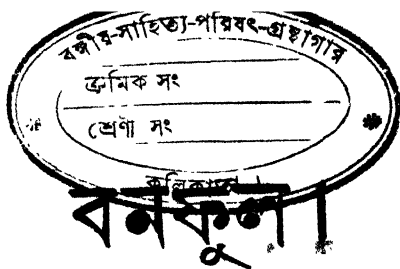 বঙ্গীয়-সাহিত্য-পরিষৎ-গ্রন্থাগার
ক্রমিক সং
শ্রেণী সং
কলিকাতা ।
বনফুল ।